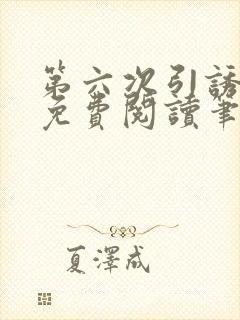 第六次引誘
免費閱讀筆
夏澤成